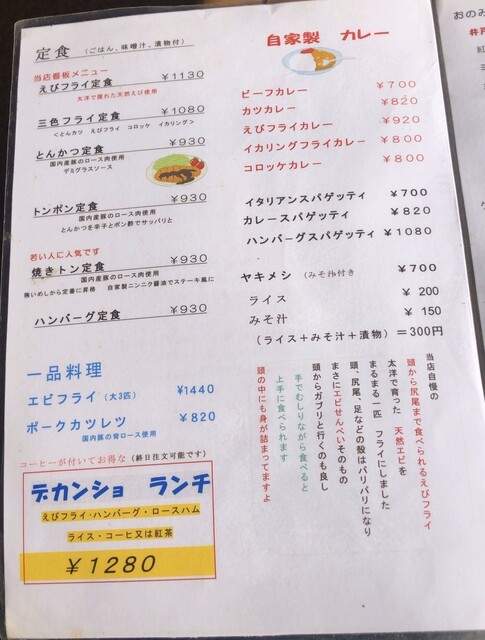 定食 （ごはん、味噌汁、漬物付）
当店看板メニュー
えびフライ定食 ￥1130
太洋で獲れた天然えび使用
三色フライ定食 ￥1080
＜とんカツ えびフライ コロッケ イカリング＞
とんかつ定食 ￥930
国内産豚のロース肉使用
デミグラスソース
トンポン定食 ￥930
国内産豚のロース肉使用
とんかつを辛子とポン酢でサッパリと
若い人に人気です
焼きトン定食 ￥930
国内産豚のロース肉使用
賄いめしから定番に昇格 自家製ニンニク醤油でステーキ風に
ハンバーグ定食 ￥930
一品料理
エビフライ（大3匹） ¥1440
ポークカツレツ ￥820
国内豚の背ロース使用
コーヒーが付いてお得な（終日注文可能です）
デカンショ ランチ
えびフライ・ハンバーグ・ロースハム
ライス・コーヒ又は紅茶
￥1280
自家製 カレー
ビーフカレー ￥700
カツカレー ￥820
えびフライカレー ￥920
イカリングフライカレー ￥800
コロッケカレー ￥800
イタリアンスパゲッティ ￥700
カレースパゲッティ ￥820
ハンバーグスパゲッティ ￥1080
ヤキメシ （みそ汁付き ￥700
ライス ￥ 200
みそ汁 ￥ 150
（ライス＋みそ汁＋漬物）＝300円
当店自慢の
頭から尻尾まで食べられるえびフライ
太洋で育った 天然エビを
まるまる一匹 フライにしました
頭、尻尾、足などの殻はパリパリになり
まさにエビせんべいそのもの
頭からガブリと行くのも良し
手でむしりながら食べると
上手に食べられます
頭の中にも身が詰まってますよ
おのみ